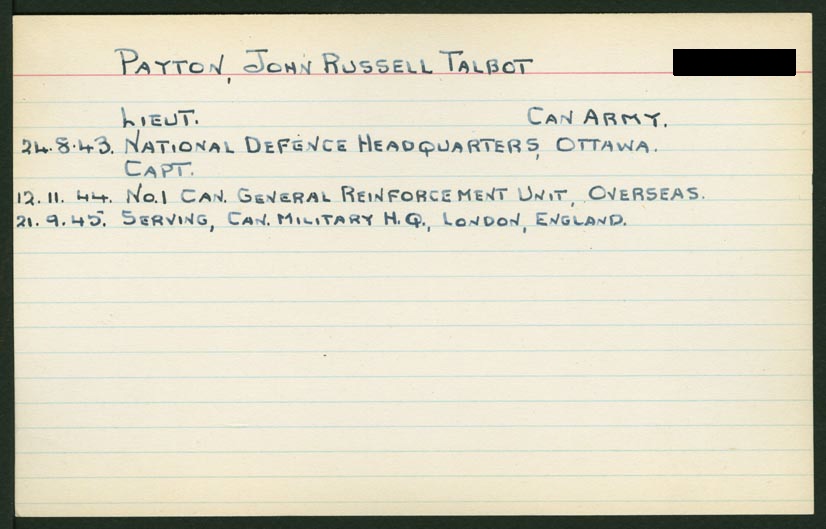 PAYTON, JOHN RUSSELL TALBOT
LIEUT. CAN ARMY.
24.8.43. NATIONAL DEFENCE HEADQUARTERS, OTTAWA.
CAPT.
12.11.44. NO.1 CAN. GENERAL REINFORCEMENT UNIT, OVERSEAS.
21.9.45. SERVING, CAN. MILITARY H.Q., LONDON, ENGLAND.